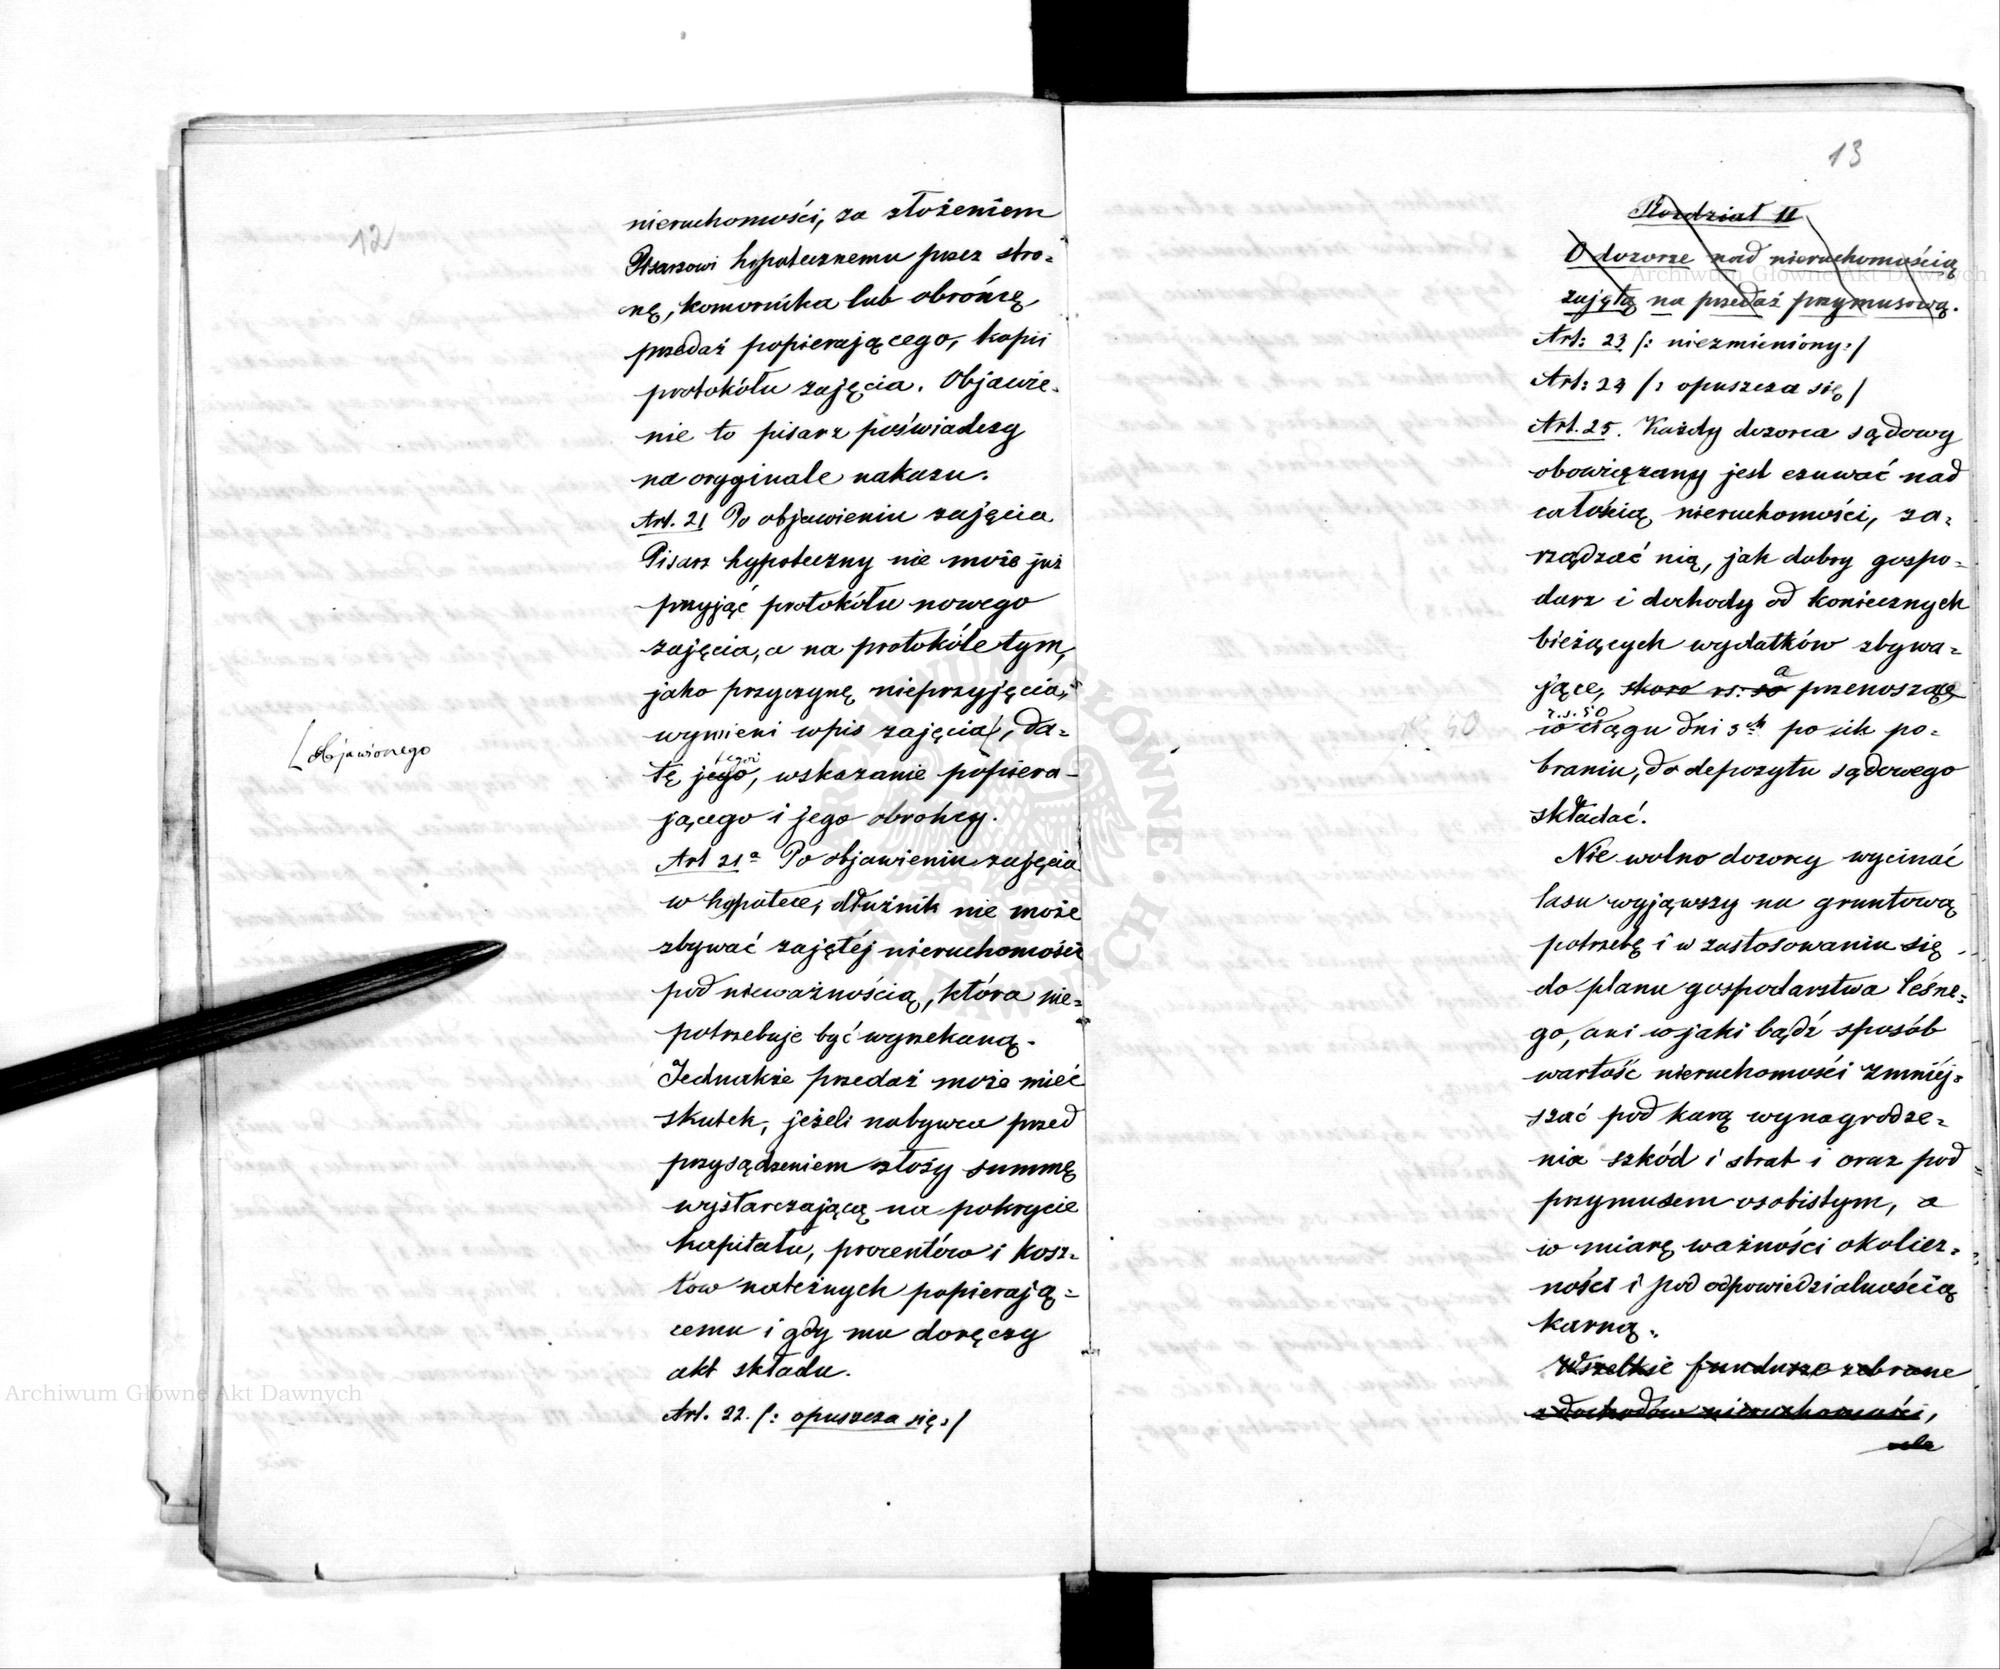 12
nieruchomości, za złożeniem
Pisarzowi hypotecznemu przez stro=
nę, komornika lub obrońcę
przedaż popierającego, kopii
protokółu zajęcia. Objawie=
nie to pisarz poświadczy
na oryginale nakazu.
Art. 21 Po objawieniu zajęcia
Pisarz hypoteczny nie może już
przyjąć protokółu nowego
zajęcia, a na protokóle tym,
jako przyczynę nieprzyjęcia,
wymieni wpis zajęcia [, da=
[objawionego
tegoż
tę jego, wskazanie popiera-
jącego i jego obrońcy.
Art 21ª Po objawieniu zajęcia
w hypotece, dłużnik nie może
zbywać zajętéj nieruchomości
pod nieważnością, która nie=
potrzebuje być wyrzekaną.
Jednakże przedaż może mieć
skutek, jeżeli nabywca przed
przysądzeniem złoży summę
wystarczającą na pokrycie
kapitału, procentów i kosz=
tów należnych popierają=
cemu i gdy mu doręczy
akt składu.
Art. 22. /: opuszcza się :/
13
Rozdział II
O dozorze nad nieruchomością
zajętą na przedaż przymusową.
Art: 23 /: niezmieniony :/
Art: 24 /: opuszcza się /
Art. 25. Każdy dozorca sądowy
obowiązany jest czuwać nad
całością nieruchomości, za=
rządzać nią, jak dobry gospo=
darz i dochody od koniecznych
bieżących wydatków zbywa=
a
jące, skoro rs: 50 przenoszące
r.s. 50
w ciągu dni 3ch po ich po=
braniu, do depozytu sądowego
składać.
Nie wolno dozorcy wycinać
lasu wyjąwszy na gruntową
potrzebę i w zastosowaniu się
do planu gospodarstwa leśne=
go, ani w jaki bądź sposób
wartość nieruchomości zmniéj=
szać pod karą wynagrodze=
nia szkód i strat i oraz pod
przymusem osobistym, a
w miarę ważności okolicz=
ności i pod odpowiedzialnością
karną.
Wszelkie fundusze zebrane
z dochodów nieruchomości,
Archiwum Główne Akt Dawnych
Archiwum Główne Akt Dawnych